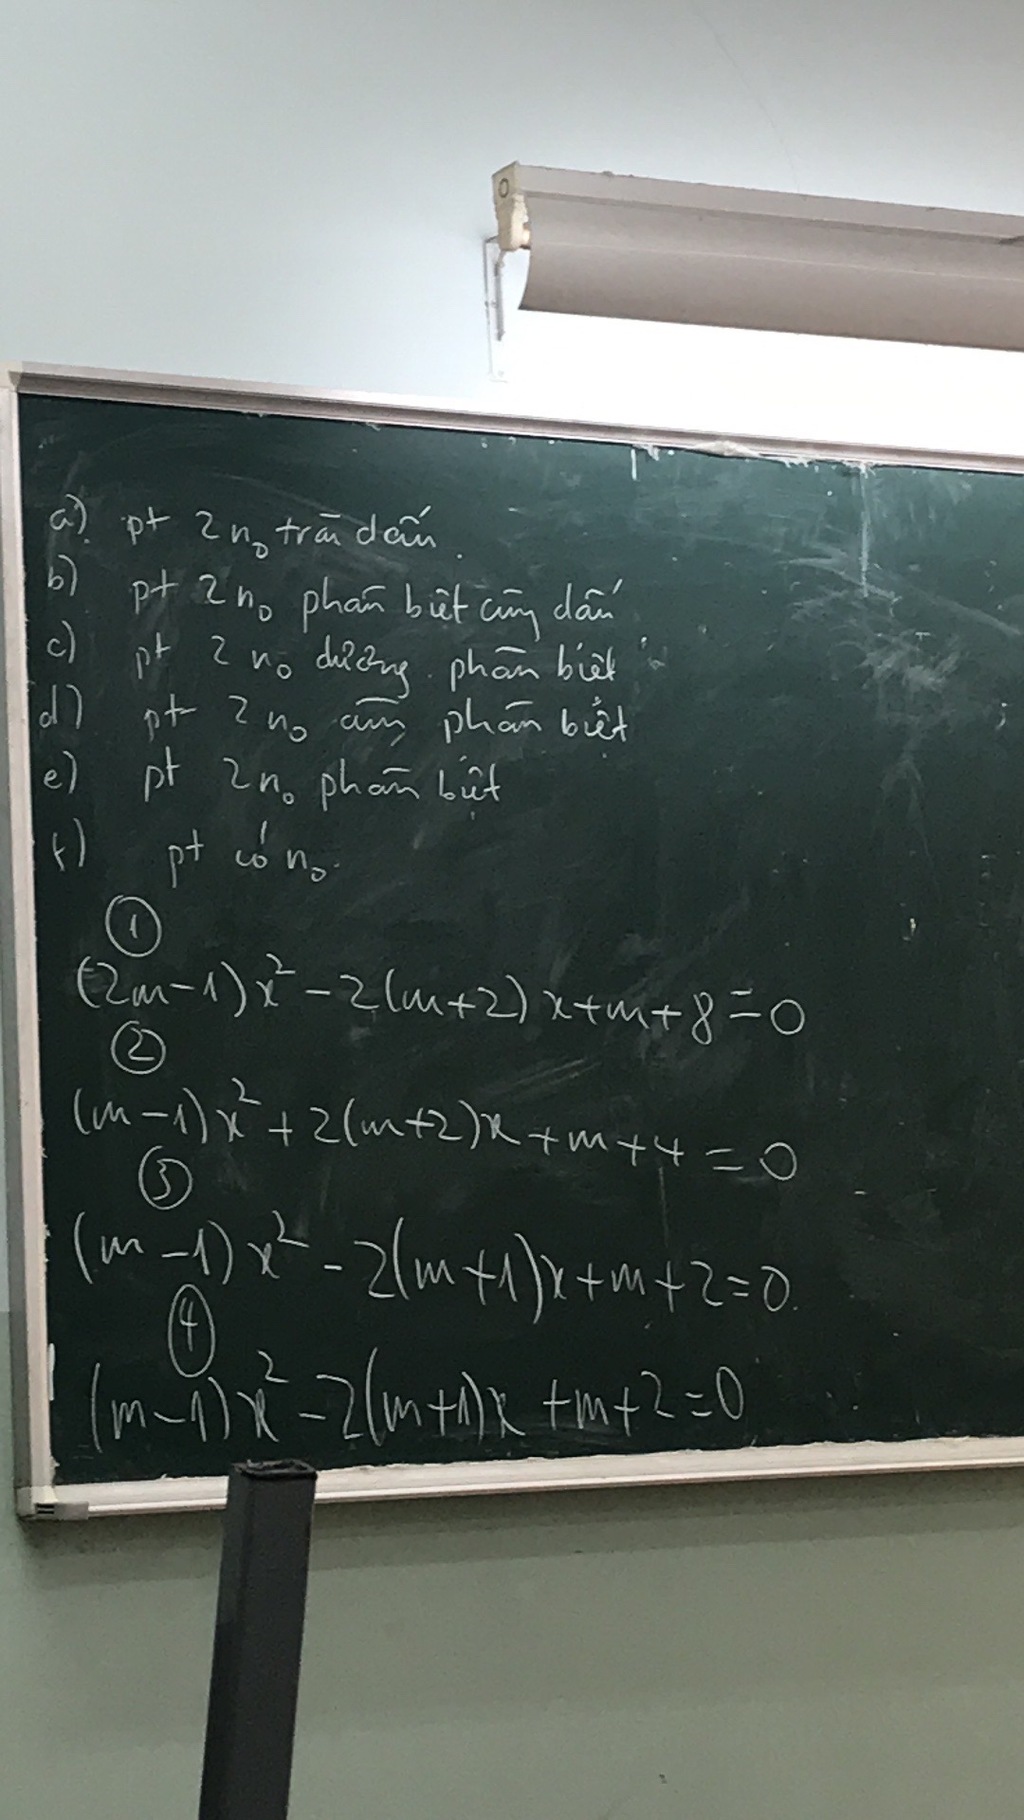 a) pt 2 n₀ trái dấu.
b) pt 2 n₀ phân biệt cùng dấu
c) pt 2 n₀ dương phân biệt
d) pt 2 n₀ âm phân biệt
e) pt 2 n₀ phân biệt
f) pt có n₀.
①
(2m-1)x² - 2(m+2)x+m+8=0
②
(m-1)x² + 2(m+2)x+m+4=0
③
(m-1)x² - 2(m+1)x+m+2=0.
④
(m-1)x² - 2(m+1)x +m+2=0